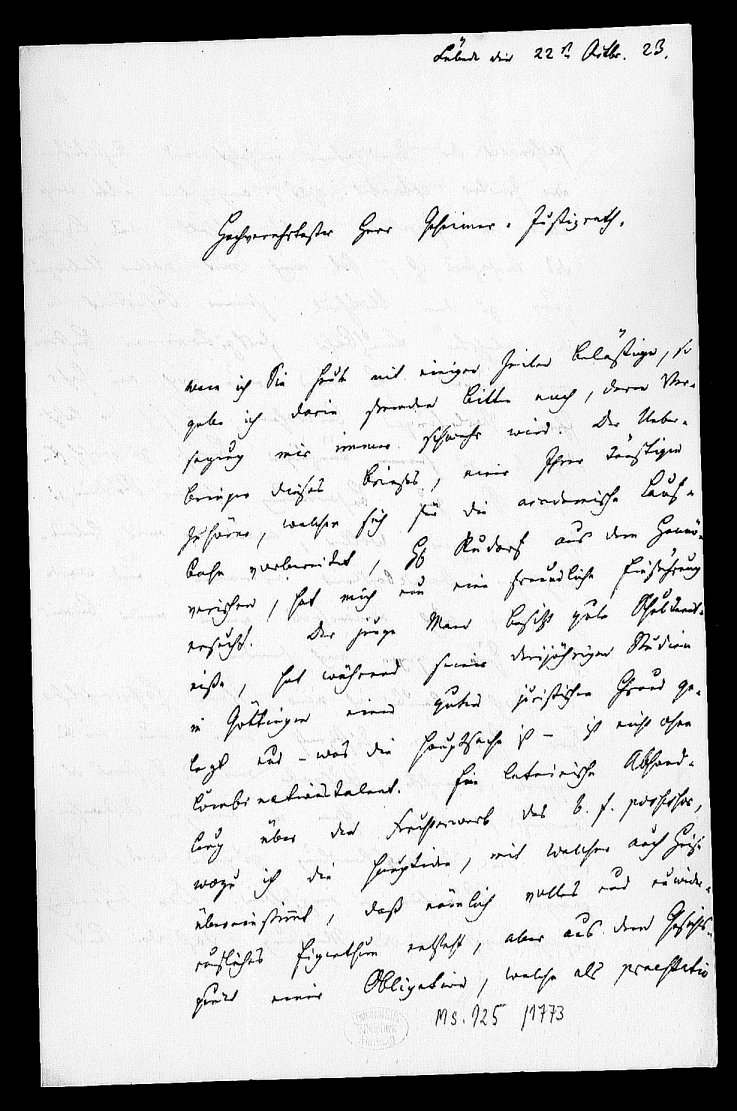 Lübeck den 22st Octbr. 23.
Hochverehrtester Herr Geheimer-Justizrath,
wenn ich Sie heute mit einigen Zeilen belästige, so
gebe ich darin fremden Bitten nach, deren Ver-
sagung mir immer schwer wird. Der Ueber-
bringer dieses Briefes, einer Ihrer künftigen
Zuhörer, welcher sich für die academische Lauf-
bahn vorbereitet, H. Rudorf aus dem Hannö-
verischen, hat mich um eine freundliche Einführung
ersucht. Der junge Mann besitzt gute Schulkennt-
niße, hat während seiner dreijährigen Studien
in Göttingen einen guten juristischen Grund ge-
legt und - was die Hauptsache ist - ist nicht ohne
Combinationstalent. Eine lateinische Abhand-
lung über den Fruchterwerb des b. f. possessor,
wozu ich die Hauptidee, mit welcher auch Heise
übereinstimmt, daß nämlich volles und unwider-
rufliches Eigenthum entsteht, aber aus dem Gesichts-
punct einer Obligation, welche als praestatio
Ms. 925/1773